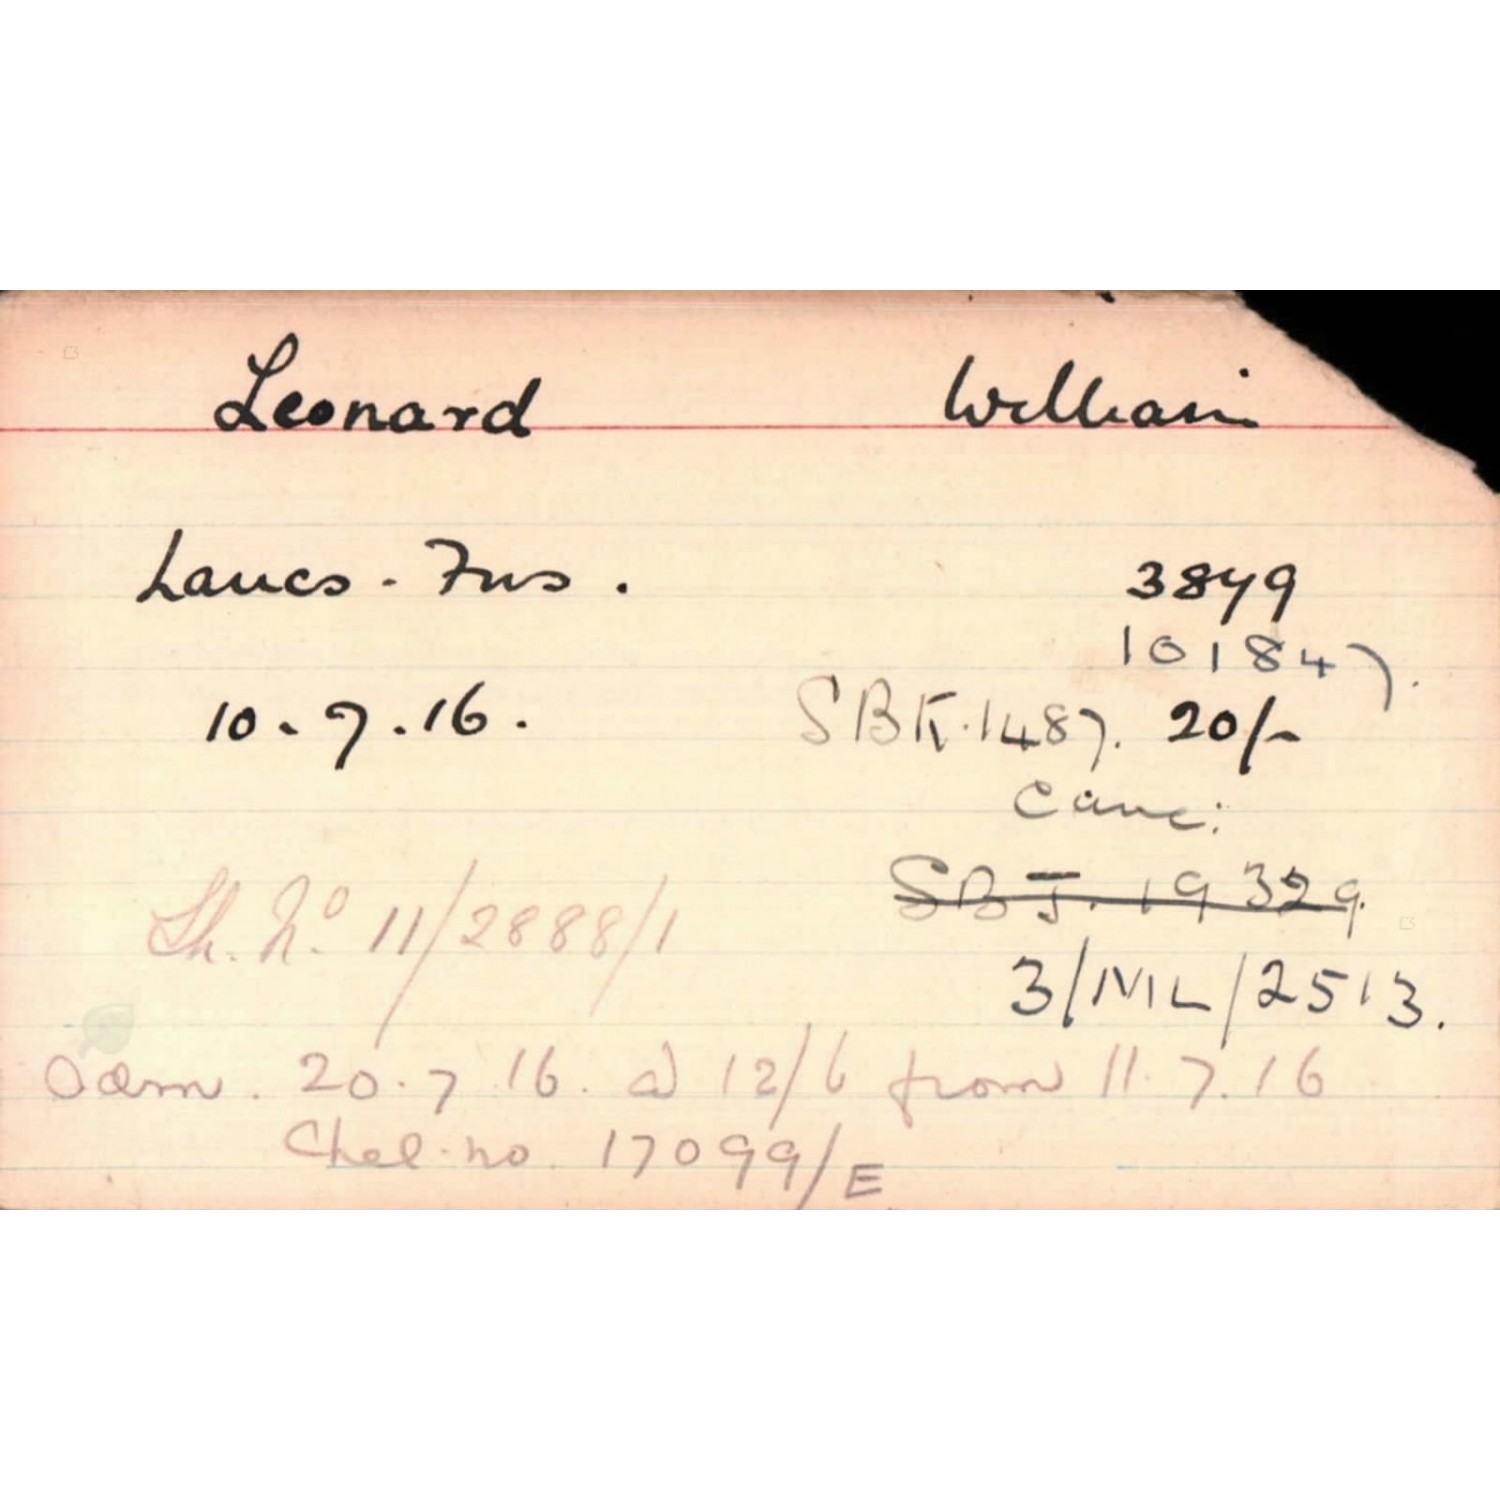 Leonard William
Lancs. Fus. 3879
101847.
10.7.16. SBK.1487. 20/-
Canc:
SBJ.19329.
Ch. No 11/2888/1
3/ML/2513.
adm. 20.7.16. @ 12/6 from 11.7.16
Chel. no. 17099/E